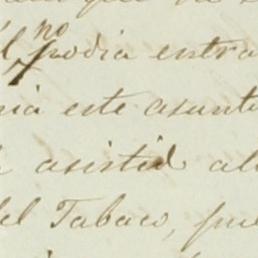 no
podia entra
este asunt
asistió al
del Tabaco, pue